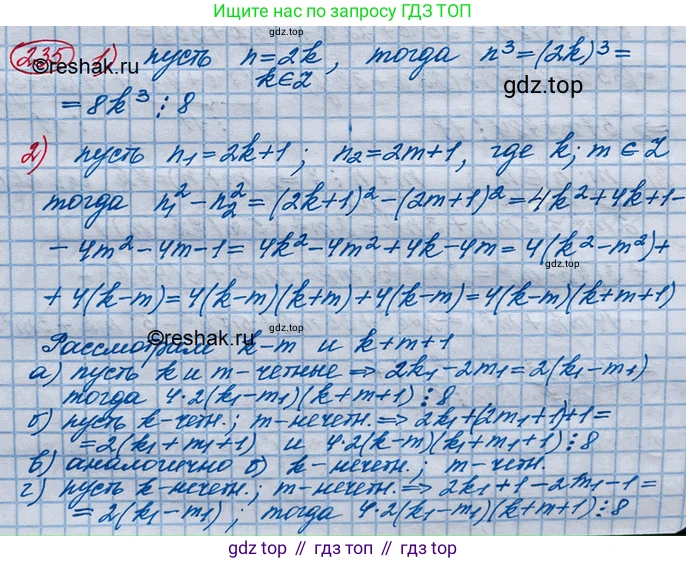 Ищите нас по запросу ГДЗ ТОП
gdz.top
235 1) пусть n=2k, тогда n³=(2k)³=
k∈Z
©reshak.ru
gdz.top
=8k³⋮8
2) пусть n₁=2k+1; n₂=2m+1, где k; m∈Z
тогда n₁²-n₂²=(2k+1)²-(2m+1)²=4k²+4k+1-
-4m²-4m-1=4k²-4m²+4k-4m=4(k²-m²)+
gdz.top
+4(k-m)=4(k-m)(k+m)+4(k-m)=4(k-m)(k+m+1)
©reshak.ru
Рассмотрим k-m и k+m+1
а) пусть k и m-четные ⇒ 2k₁-2m₁=2(k₁-m₁)
тогда 4·2(k₁-m₁)(k+m+1)⋮8
б) пусть k-четн.; m-нечетн.⇒2k₁+(2m₁+1)+1=
=2(k₁+m₁+1) и 4·2(k-m)(k₁+m₁+1)⋮8
в) аналогично б) k-нечетн.; m-четн.
г) пусть k-нечетн.; m-нечетн.⇒2k₁+1-2m₁-1=
=2(k₁-m₁); тогда 4·2(k₁-m₁)(k+m+1)⋮8
gdz.top
gdz.top // гдз.top // гдз.топ